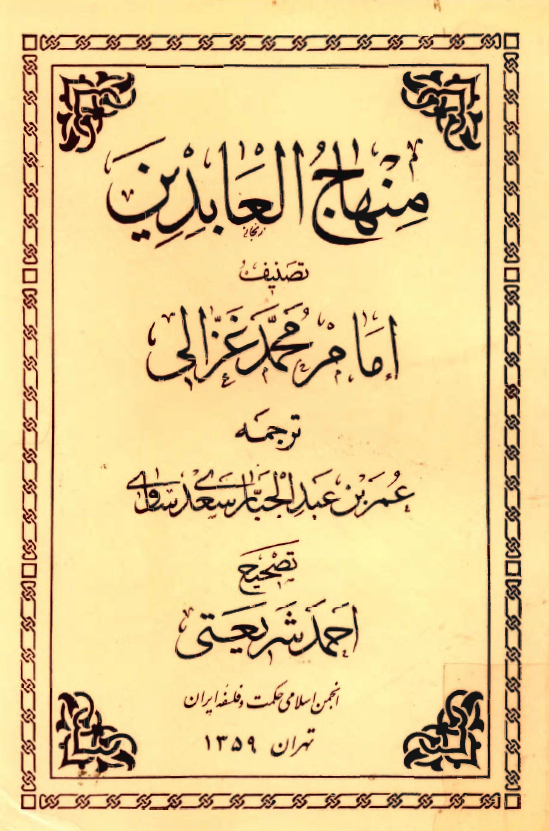 منهاجُ العَابِدِينَ
تصنیف
امَام محُمَّد غَزّالی
ترجمه
عُمَر بْن عَبدِ الْجَبّار سَعْدی سَاوی
تصْحیح
احمَد شَریعَتی
انجمن اسلامی حکمت و فلسفه ایران
تهران ۱۳۵۹